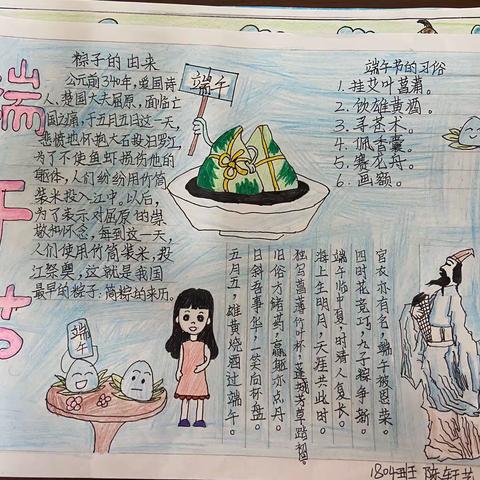 端午节
粽子的由来
公元前340年,爱国诗
人、楚国大夫屈原,面临亡
国之痛,于五月五日这一天,
悲愤地怀抱大石投汨罗江,
为了不使鱼虾损伤他的
躯体,人们纷纷用竹筒
装米投入江中。以后,
为了表示对屈原的崇
敬和怀念,每到这一天,
人们使用竹筒装米,投
江祭奠,这就是我国
最早的粽子:筒粽的来历。
端午
端午节的习俗
1. 挂艾叶菖蒲。
2. 饮雄黄酒。
3. 寻苍术。
4. 佩香囊。
5. 赛龙舟。
6. 画额。
宫衣亦有名,端午被恩荣。
四时花竞巧,九子粽争新。
端午临中夏,时清人复长。
海上生明月,天涯共此时。
独写菖蒲竹叶杯,蓬城芳草踏初回。
旧俗方储药,羸躯亦点丹。
日斜吾事毕,一笑向杯盘。
五月五,雄黄烧酒过端午。
端午
1804班 陈轩艺